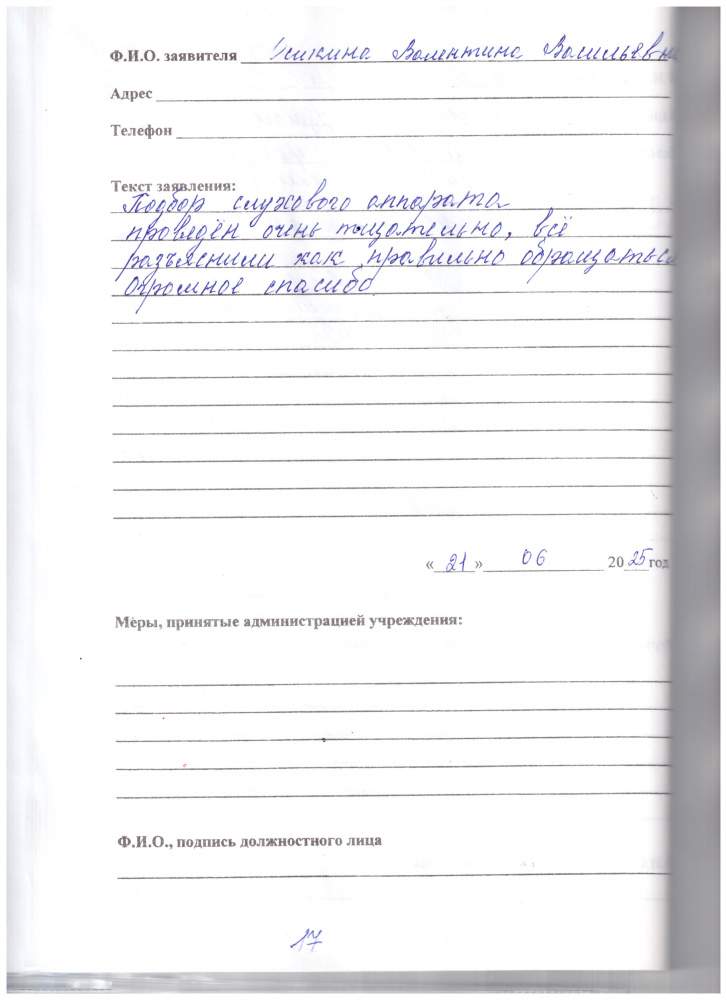 Ф.И.О. заявителя Усикина Валентина Васильевна
Адрес
Телефон
Текст заявления:
Подбор слухового аппарата
проведён очень тщательно, всё
разъяснили как правильно обращаться
Огромное спасибо.
«21» 06 2025 год
Меры, принятые администрацией учреждения:
Ф.И.О., подпись должностного лица
17